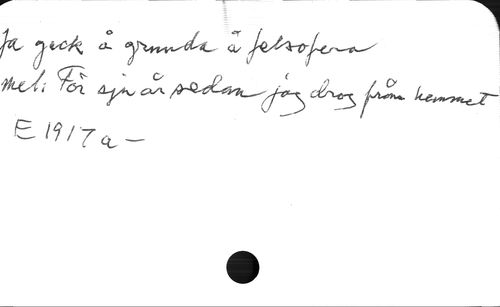 Ja geck å grunda å felsofera
mel. För sju år sedan jag drog från hemmet
E 1917 a –